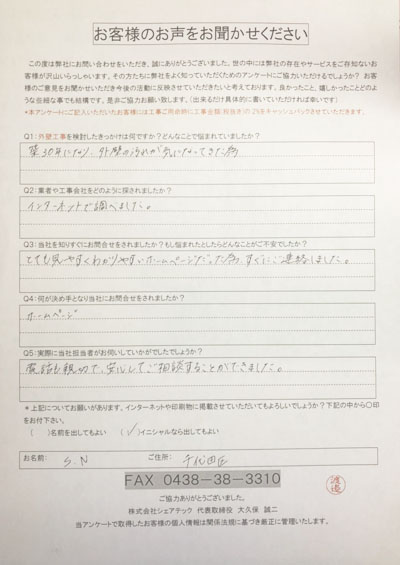 お客様のお声をお聞かせください
この度は弊社にお問い合わせをいただき、誠にありがとうございました。世の中には弊社の存在やサービスをご存知ないお
客様が沢山いらっしゃいます。その方たちに弊社をよく知っていただくためのアンケートにご協力いただけるでしょうか？ お客
様のご意見をお聞かせいただき今後の活動に反映させていただきたいと考えております。良かったこと、嬉しかったことどのよう
な些細な事でも結構です。是非ご協力お願い致します。（出来るだけ具体的に書いていただければ幸いです）
*本アンケートにご記入いただいたお客様には工事ご何点時に工事金額（税抜き）の2%をキャッシュバックさせていただきます。
Q1：外壁工事を検討したきっかけは何ですか？どんなことで悩まれていましたか？
築30年になり、外壁の汚れが気になってきた為
Q2：業者や工事会社をどのように探されましたか？
インターネットで調べました。
Q3：当社を知りすぐにお問合せをされましたか？もし悩まれたとしたらどんなことがご不安でしたか？
とても見やすくわかりやすいホームページだった為、すぐにご連絡しました。
Q4：何が決め手となり当社にお問合せをされましたか？
ホームページ
Q5：実際に当社担当者がお伺いしていかがでしたでしょうか？
電話も親切で、安心してご相談することができました。
* 上記についてお願いがあります。インターネットや印刷物に掲載させていただいてもよろしいでしょうか？下記の中から〇印
をお付下さい。
（ ）名前を出してもよい （✓）イニシャルなら出してもよい
お名前： S.N ご住所： 千代田区
FAX 0438-38-3310
渡邉
ご協力ありがとうございました。
株式会社シェアテック 代表取締役 大久保 誠二
当アンケートで取得したお客様の個人情報は関係法規に基づき厳正に管理いたします。